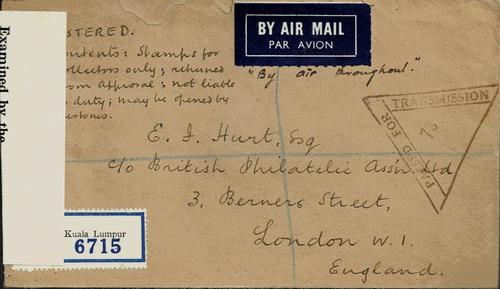 STERED.
ontents: Stamps for
ollectors only; returned
rom Approval; not liable
duty; may be opened by
ustoms.
BY AIR MAIL
PAR AVION
"By air throughout."
Examined by the
PASSED FOR
TRANSMISSION
73
E. F. Hurt, Esq
c/o British Philatelic Ass'n. Ltd
3, Berners Street,
London W.1.
England.
Kuala Lumpur
6715